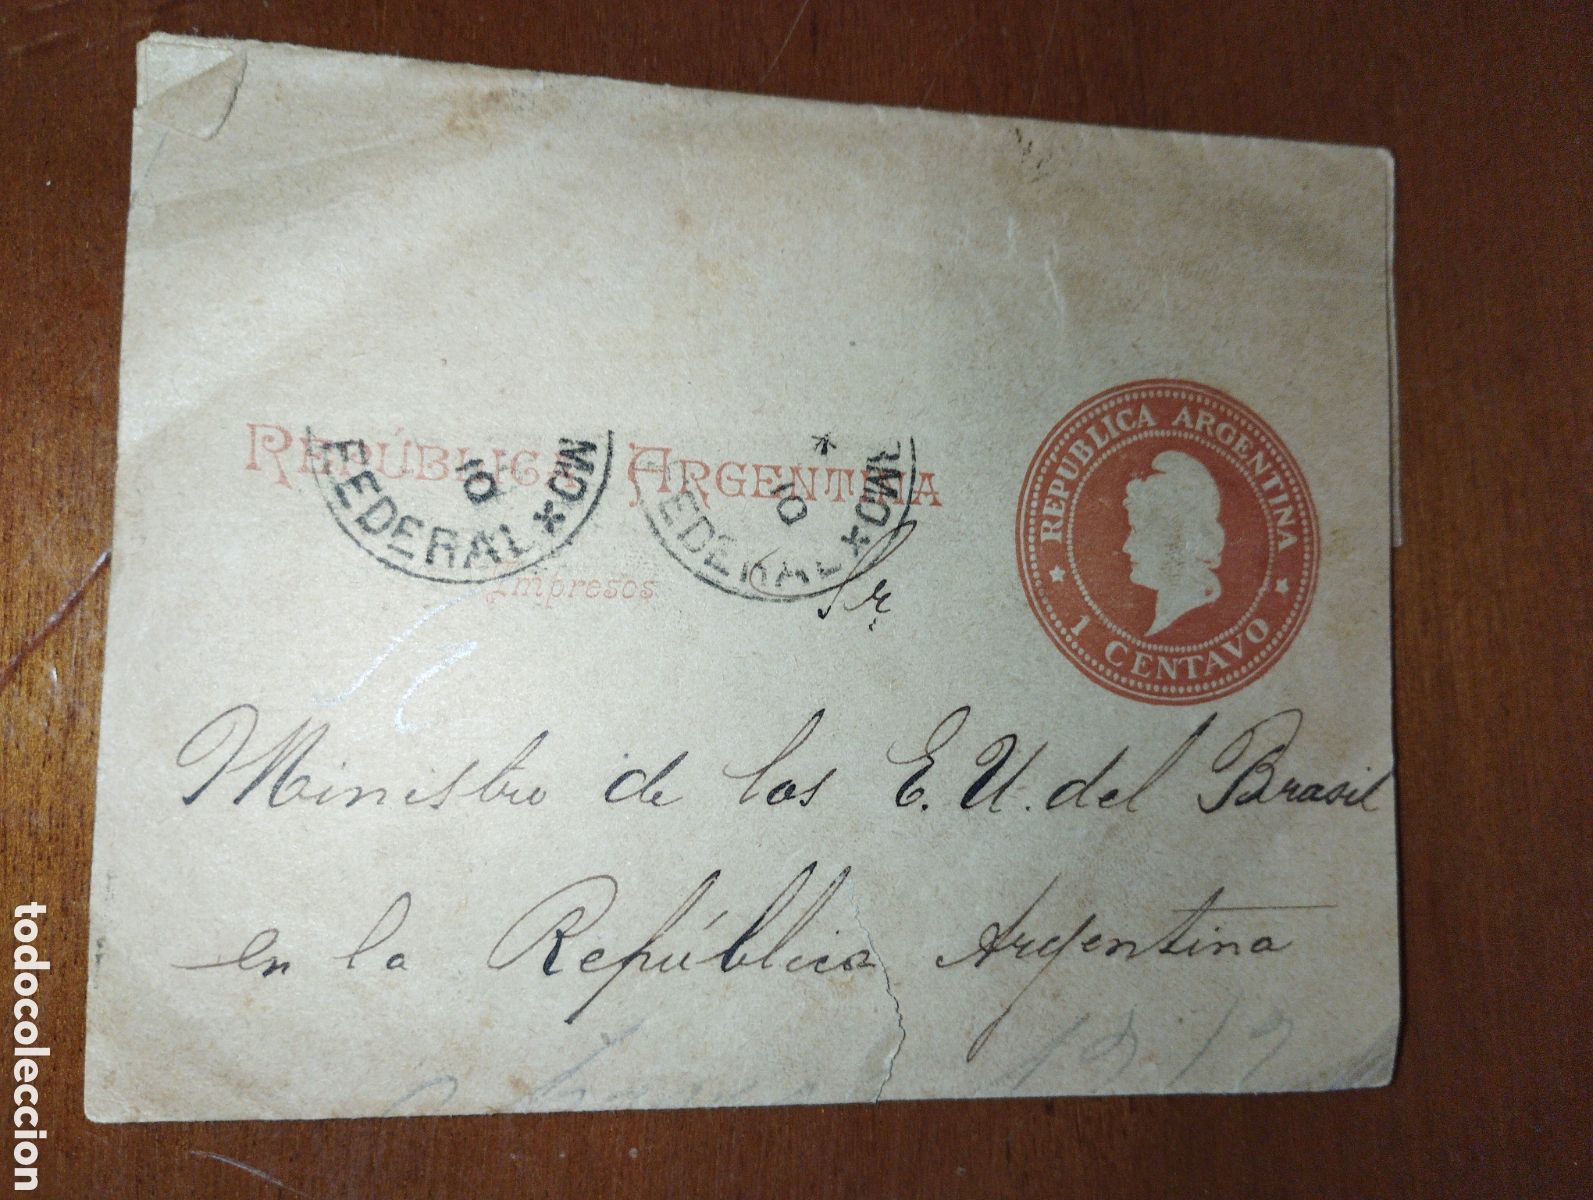 REPÚBLICA ARGENTINA
Impresos
FEDERAL
10
FEDERAL
10
REPUBLICA ARGENTINA
1 CENTAVO
Sr.
Ministro de los E. U. del Brasil
en la República Argentina
todocoleccion